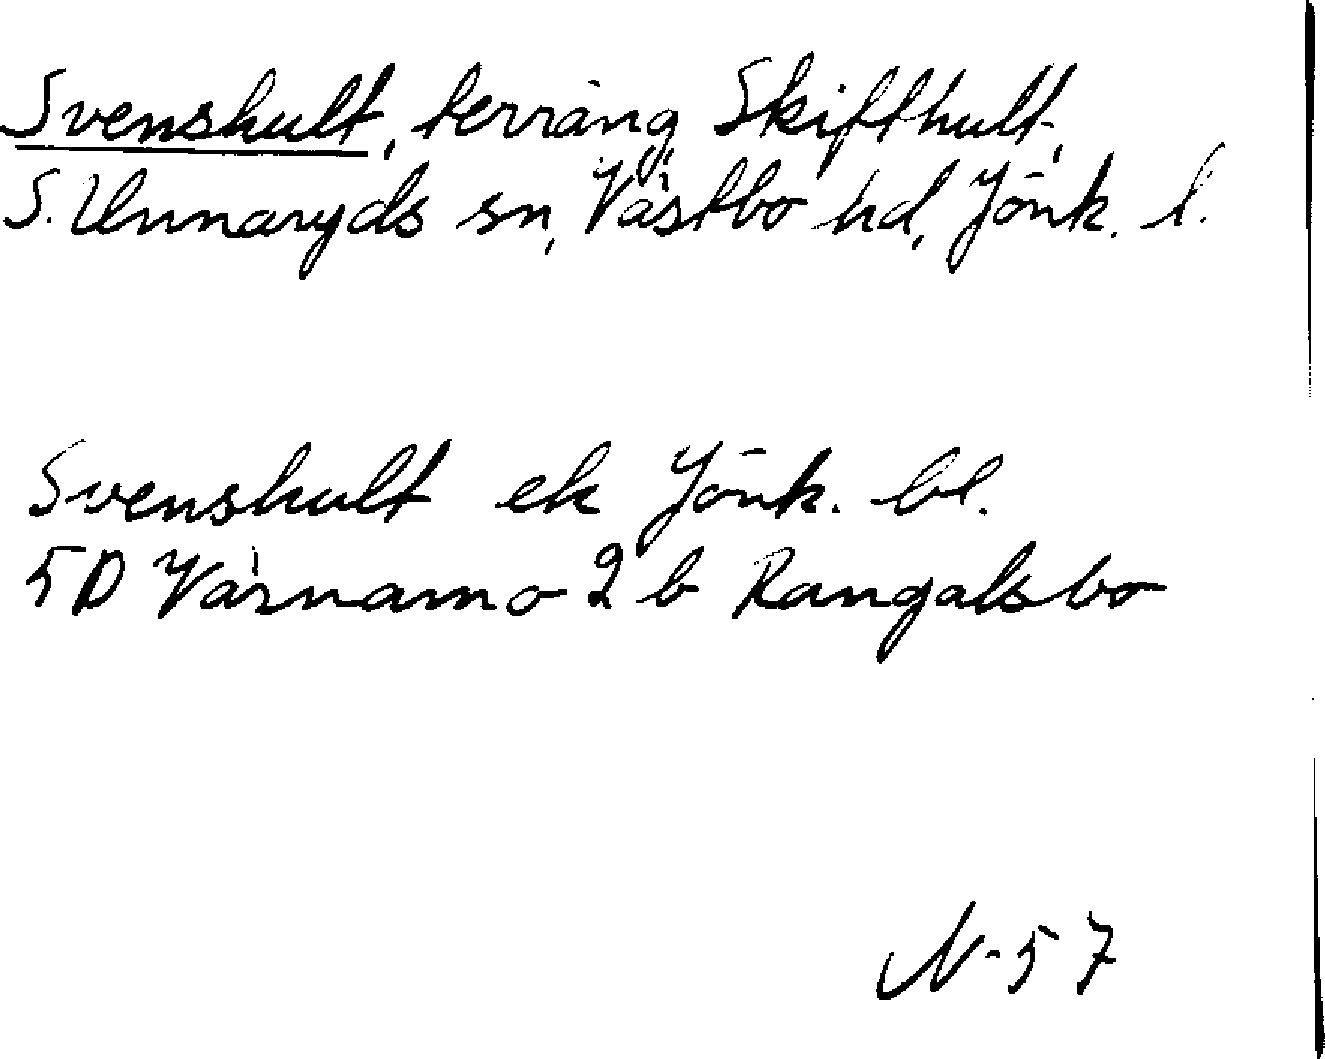 Svenshult, terräng, Skifthult,
S. Unnaryds sn, Västbo hd, Jönk. l.
Svenshult ek Jönk. bl.
5D Värnamo 2 b Rangalsbo
N-57